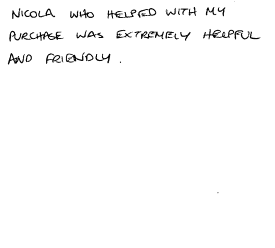 NICOLA WHO HELPED WITH MY
PURCHASE WAS EXTREMELY HELPFUL
AND FRIENDLY.